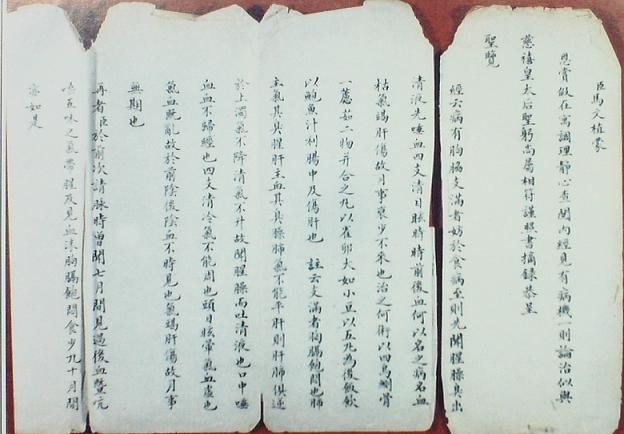 臣馬文植蒙
恩賞假在寓調理靜心查閱內經見有病機一則論治似與
慈禧皇太后聖躬尚屬相符謹照書摘錄恭呈
聖覽
經云病有胸脇支滿者妨於食病至則先聞腥臊臭出
清液先唾血四支清目眩時時前後血何以名之病名血
枯氣竭肝傷故月事衰少不來也治之何術以四烏鰂骨
一藘茹二物并合之丸以雀卵大如小豆以五丸為後飯飲
以鮑魚汁利腸中及傷肝也 註云支滿者胸膈飽悶也肺
主氣其臭腥肝主血其臭臊肺氣不能平肝則肝肺俱逆
於上濁氣不降清氣不升故聞腥臊而吐清液也口中唾
血血不歸經也四支清冷氣不能周也頭目眩暈氣血虛也
氣血既亂故於前陰後陰血不時見也氣竭肝傷故月事
無期也
再者臣於前次請脉時曾聞七月間見過後血暨亢
嗆五味之氣帶腥及見血沫胸膈飽悶食少九十月間
亦如是